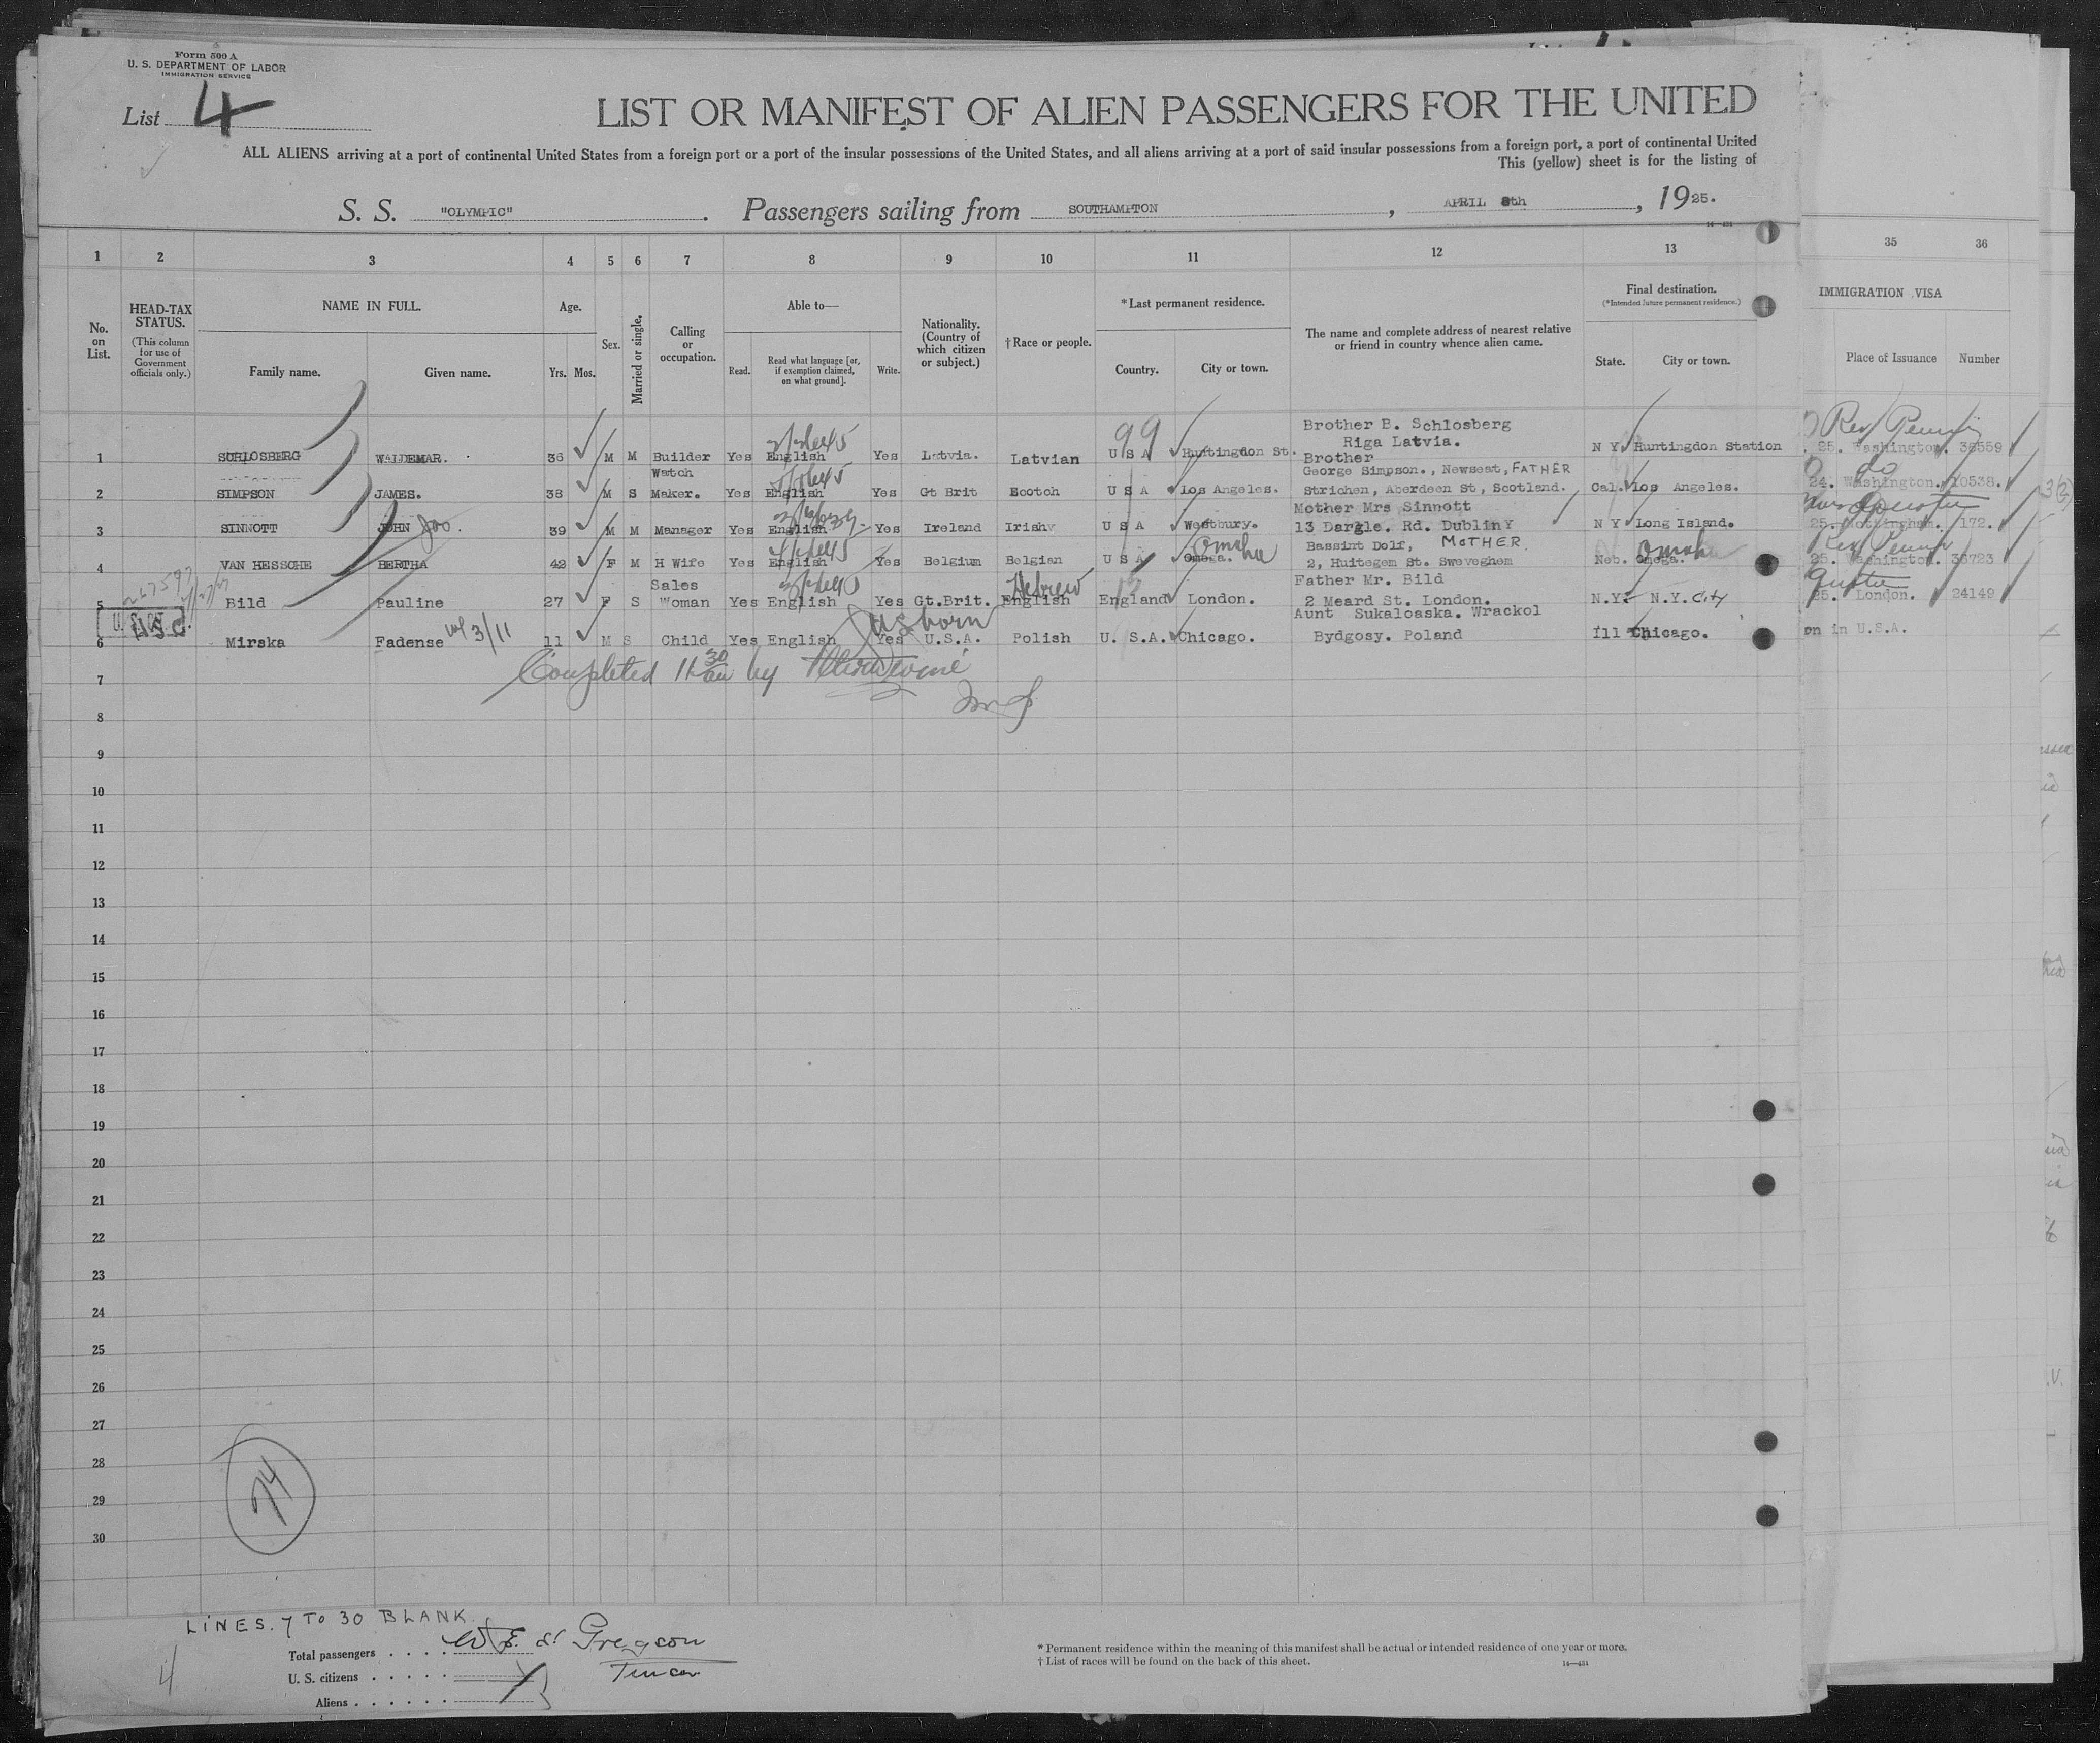 Form 500 A
U. S. DEPARTMENT OF LABOR
IMMIGRATION SERVICE
List 4
LIST OR MANIFEST OF ALIEN PASSENGERS FOR THE UNITED
ALL ALIENS arriving at a port of continental United States from a foreign port or a port of the insular possessions of the United States, and all aliens arriving at a port of said insular possessions from a foreign port, a port of continental United
This (yellow) sheet is for the listing of
S. S. "OLYMPIC". Passengers sailing from SOUTHAMPTON, APRIL 8th, 1925.
1 2 3 4 5 6 7 8 9 10 11 12 13 35 36
No. on List.
HEAD-TAX STATUS.
(This column for use of Government officials only.)
NAME IN FULL.
Family name. Given name.
Age.
Yrs. Mos.
Sex.
Married or single.
Calling or occupation.
Able to—
Read. Read what language [or, if exemption claimed, on what ground]. Write.
Nationality. (Country of which citizen or subject.)
†Race or people.
*Last permanent residence.
Country. City or town.
The name and complete address of nearest relative or friend in country whence alien came.
Final destination.
(*Intended future permanent residence.)
State. City or town.
IMMIGRATION VISA
Place of Issuance Number
99
Brother B. Schlosberg
Riga Latvia.
1 SCHLOSBERG WALDEMAR. 36 M M Builder Yes English Yes Latvia. Latvian U S A Huntingdon St. N Y. Huntingdon Station 25. Washington. 36559
Brother
George Simpson., Newseat, FATHER
2 SIMPSON JAMES. 38 M S Watch Maker. Yes English Yes Gt Brit Scotch U S A Los Angeles. Strichen, Aberdeen St, Scotland. Cal. Los Angeles. 24. Washington. 10538.
do
Mother Mrs Sinnott
3 SINNOTT JOHN 39 M M Manager Yes English Yes Ireland Irish U S A Westbury. 13 Dargle. Rd. Dublin N Y Long Island. 25. Nottingham. 172.
Bassint Dolf, MOTHER
4 VAN HESSCHE BERTHA 42 F M H Wife Yes English Yes Belgium Belgian U S A Omega. Omaha 2, Huitegem St. Sweveghem Neb. Omega. Omaha 25. Washington. 36723
Father Mr. Bild
5 Bild Pauline 27 F S Sales Woman Yes English Yes Gt.Brit. English Hebrew England London. 2 Meard St. London. N.Y. N.Y. City 25. London. 24149
US born
Aunt Sukaloaska. Wrackol
6 Mirska Fadense 3/11 11 M S Child Yes English Yes U.S.A. Polish U. S.A. Chicago. Bydgosy. Poland Ill Chicago. on in U.S.A.
Completed 11 30 am by
7
8
9
10
11
12
13
14
15
16
17
18
19
20
21
22
23
24
25
26
27
28
29
30
74
LINES. 7 TO 30 BLANK.
Total passengers . . . .
U. S. citizens . . . . .
Aliens . . . . . .
4
* Permanent residence within the meaning of this manifest shall be actual or intended residence of one year or more.
† List of races will be found on the back of this sheet.
14—431